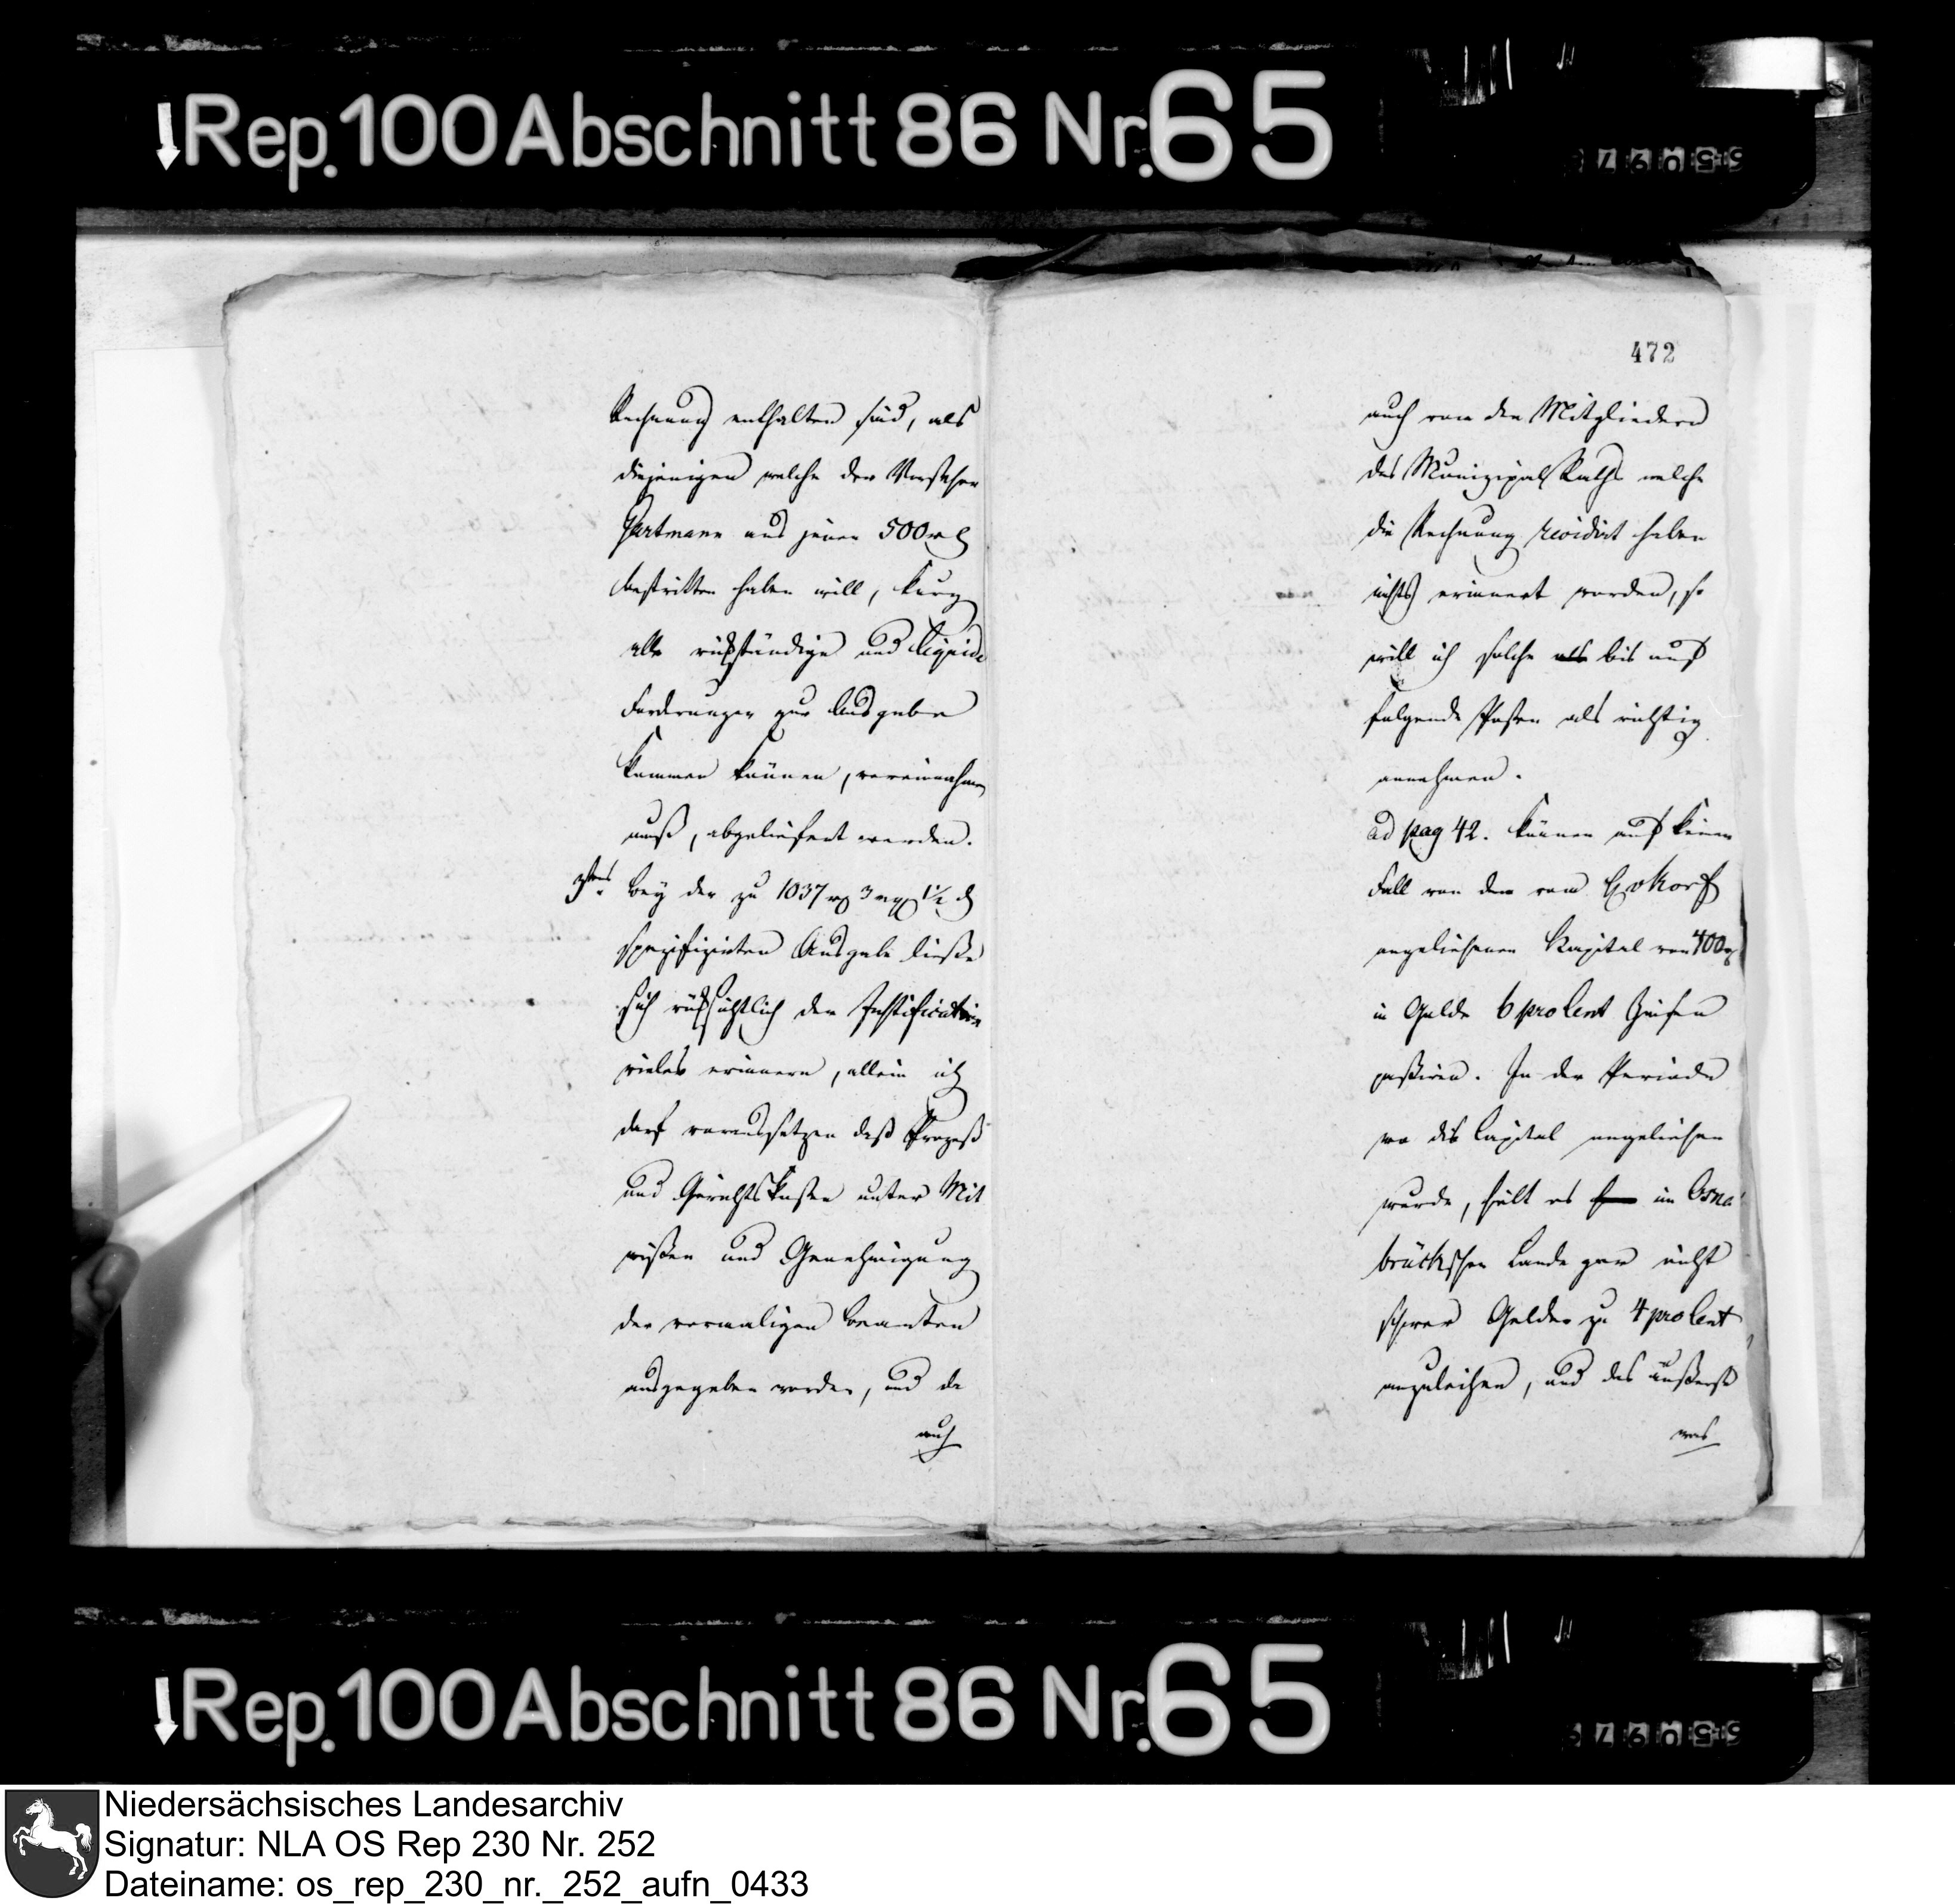 Rep. 100 Abschnitt 86 Nr. 65
Rechnung enthalten sind, als
diejenigen welche der Vorsteher
Hartmann aus jenen 500 rth
bestritten haben will, kurz
alle rükständige und liquide
Forderungen zur Ausgabe
kommen können, vereinnahmen
muß, abgeliefert werden.
Bey der zu 1037 rth 3 ggr 1½ d
spezifizirten Ausgabe ließe
sich rüksichtlich der Justification
vieles erinnern, allein ich
darf voraussetzen daß Prozeß
und Gerichtskosten unter Mit
wißen und Genehmigung
der vormaligen Beamten
ausgegeben worden, und da
auch
472
auch von den Mitgliedern
des Munizipal Raths welche
die Rechnung revidirt haben
nichts erinnert worden, so
will ich solche als bis auf
folgende Posten als richtig
annehmen.
ad pag 42. können auf keinen
Fall von dem vom
angeliehenen Kapital von 400 rth
in Golde 6 pro Cent Zinsen
paßiren. In der Periode
wo dis Capital angeliehen
wurde, hält es im Osna
brückschen Lande gar nicht
schwer Gelder zu 4 pro Cent
anzuleihen, und das äußerst
was
Rep. 100 Abschnitt 86 Nr. 65
Niedersächsisches Landesarchiv
Signatur: NLA OS Rep 230 Nr. 252
Dateiname: os_rep_230_nr._252_aufn_0433